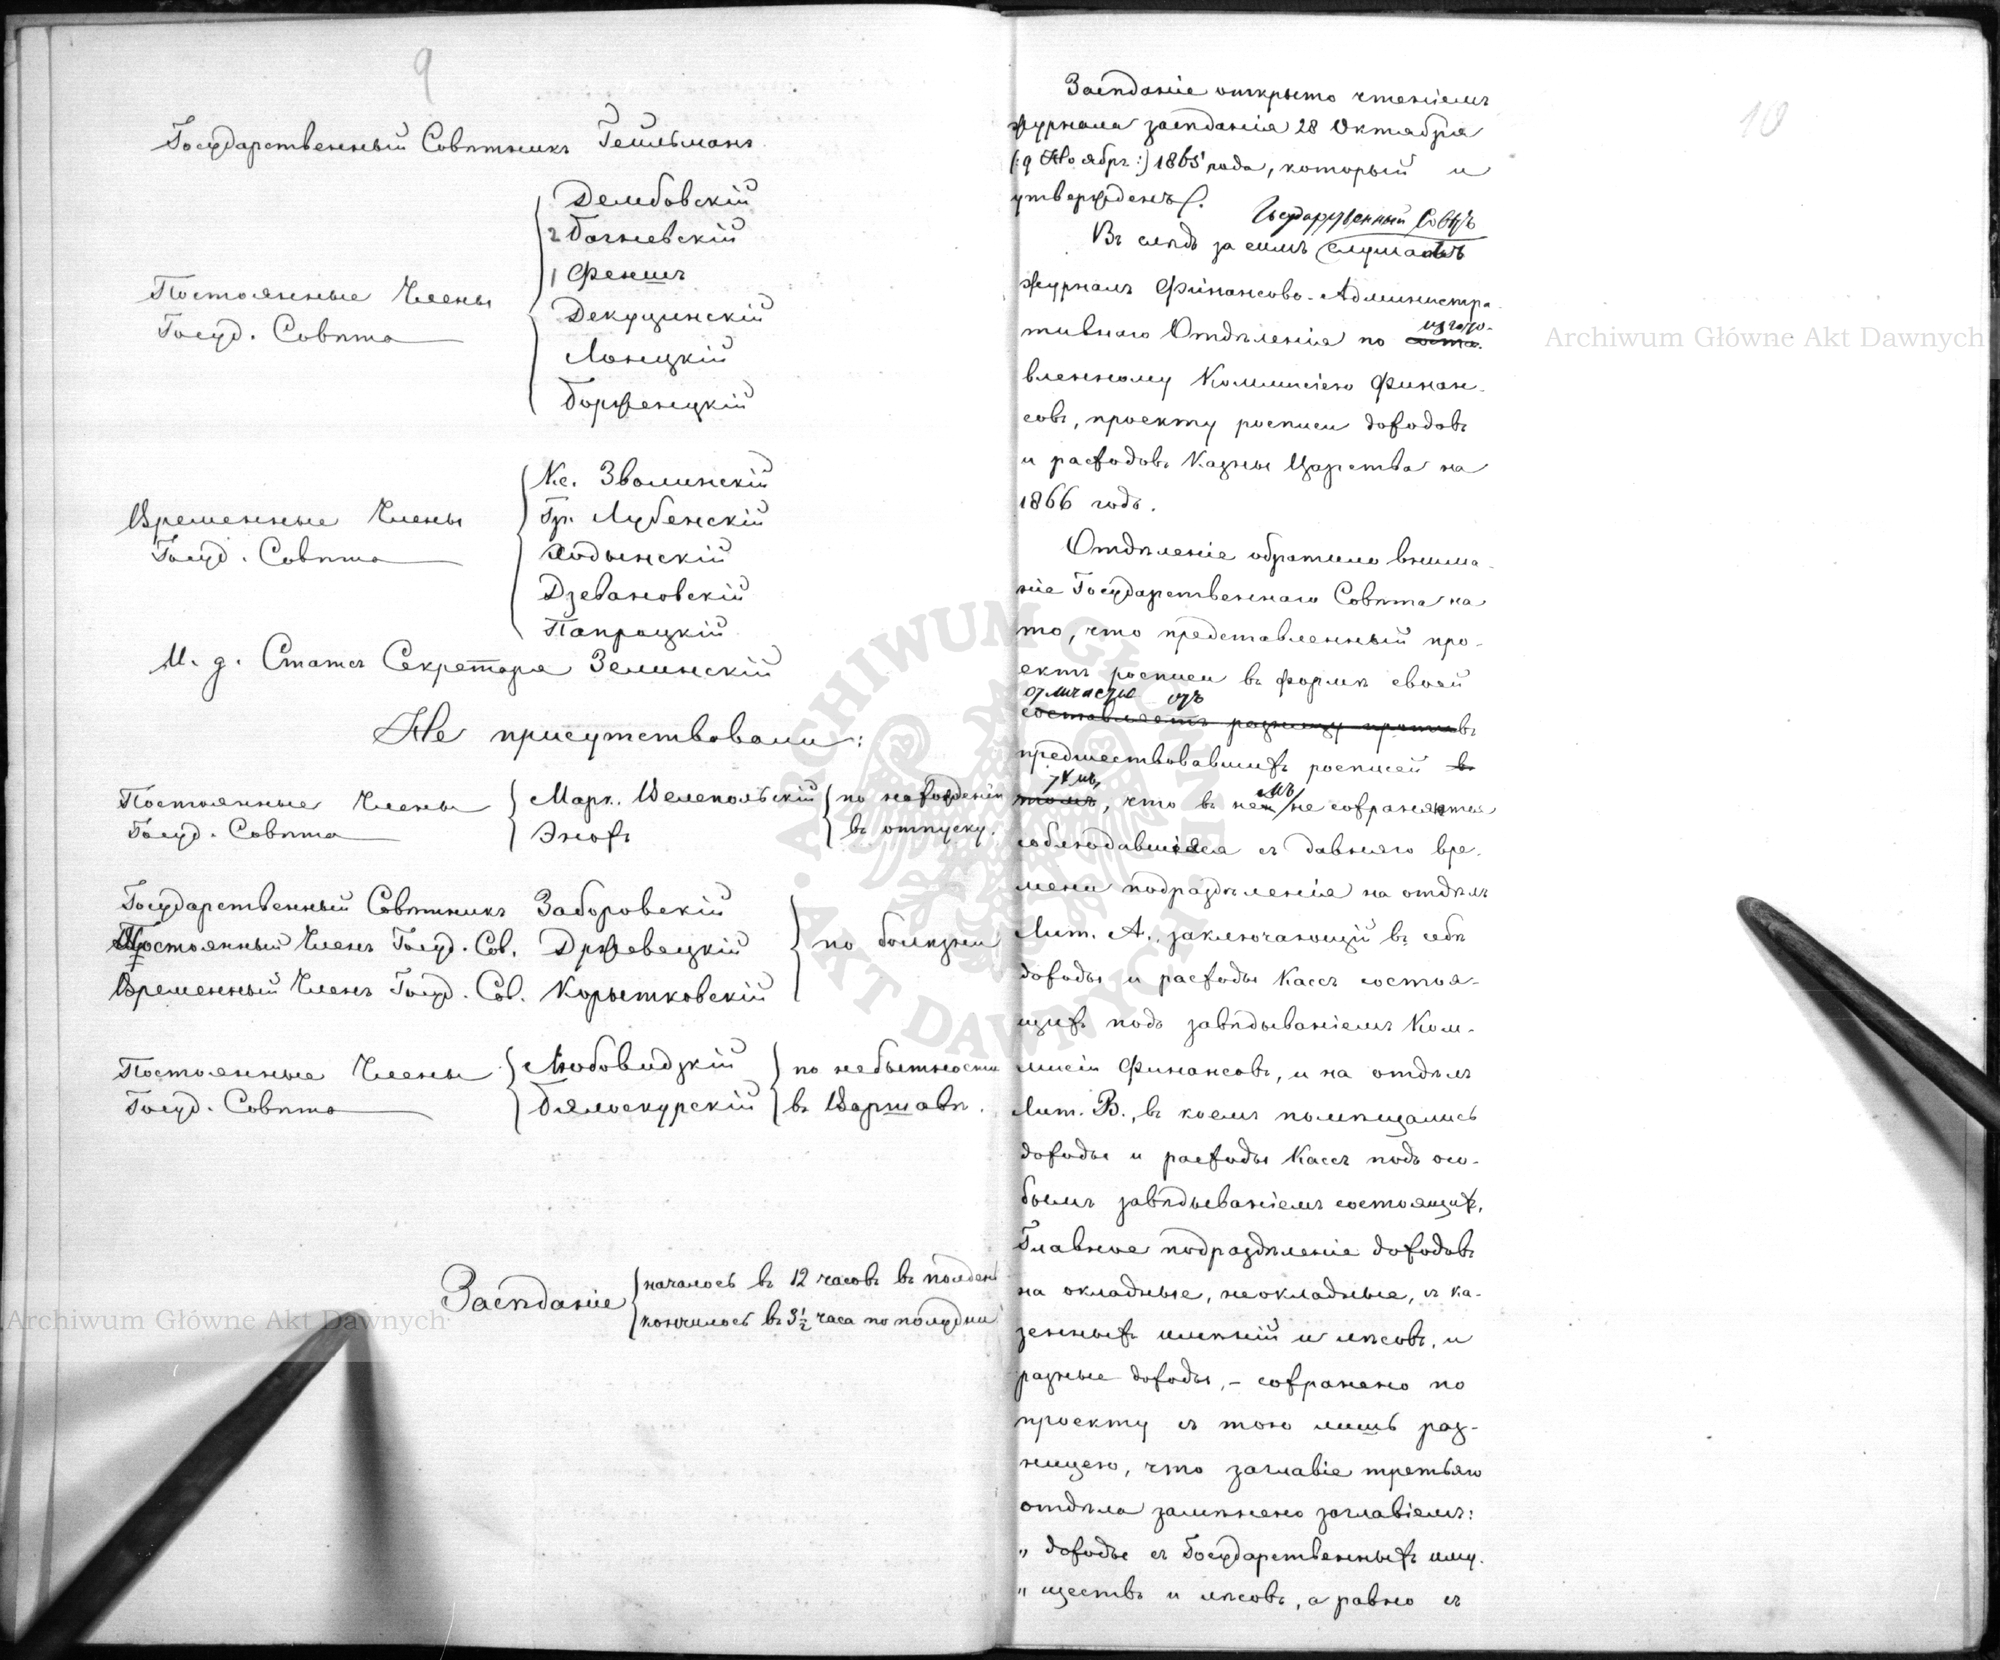 9
Государственный Совѣтникъ Гейльманъ
Дембовскій
2 Багневскій
1 Феншъ
Постоянные Члены
Госуд. Совѣта
Декуцинскій
Лонцкій
Борженцкій
Кс. Зволинскій
Временные Члены
Госуд. Совѣта
Гр. Лубенскій
Ходынскій
Дзевановскій
Папроцкій
И. д. Статсъ Секретаря Зелинскій
Не присутствовали:
Постоянные Члены
Госуд. Совѣта
Марк. Велепольскій
Энохъ
по нахожденію
въ отпуску.
Государственный Совѣтникъ Заборовскій
Постоянный Членъ Госуд. Сов. Држевецкій
Временный Членъ Госуд. Сов. Корытковскій
по болѣзни
Постоянные Члены
Госуд. Совѣта
Любовидзкій
Бялоскурскій
по небытности
въ Варшавѣ.
Засѣданіе
началось въ 12 часовъ въ полдень
кончилось въ 3½ часа по полудни
10
Засѣданіе открыто чтеніемъ
журнала засѣданія 28 Октября
(:9 Ноября:) 1865 года, который и
утвержденъ.
Государственный Совѣтъ
Въ слѣдъ за симъ слушалъ
журналъ Финансово-Администра-
тивнаго Отдѣленія по изгото-
вленному Коммисіею Финан-
совъ, проекту росписи доходовъ
и расходовъ Казны Царства на
1866 годъ.
Отдѣленіе обратило внима-
ніе Государственнаго Совѣта на
то, что представленный про-
ектъ росписи въ формѣ своей
отличается отъ
составляетъ разницу противъ
предшествовавшихъ росписей въ
тѣмъ,
томъ, что въ немъ не сохраняется
соблюдавшаяся съ давняго вре-
мени подраздѣленія на отдѣлъ
Лит. А., заключающій въ себѣ
доходы и расходы Кассъ состоя-
щихъ подъ завѣдываніемъ Ком-
мисіи Финансовъ, и на отдѣлъ
Лит. В., въ коемъ помѣщались
доходы и расходы Кассъ подъ осо-
бымъ завѣдываніемъ состоящихъ,
Главное подраздѣленіе доходовъ
на окладные, неокладные, съ ка-
зенныхъ имѣній и лѣсовъ, и
разные доходы, – сохранено по
проекту съ тою лишь раз-
ницею, что заглавіе третьяго
отдѣла замѣнено заглавіемъ:
„ доходы съ Государственныхъ иму-
„ ществъ и лѣсовъ, а равно съ
Archiwum Główne Akt Dawnych
Archiwum Główne Akt Dawnych
ARCHIWUM GŁÓWNE
AKT DAWNYCH